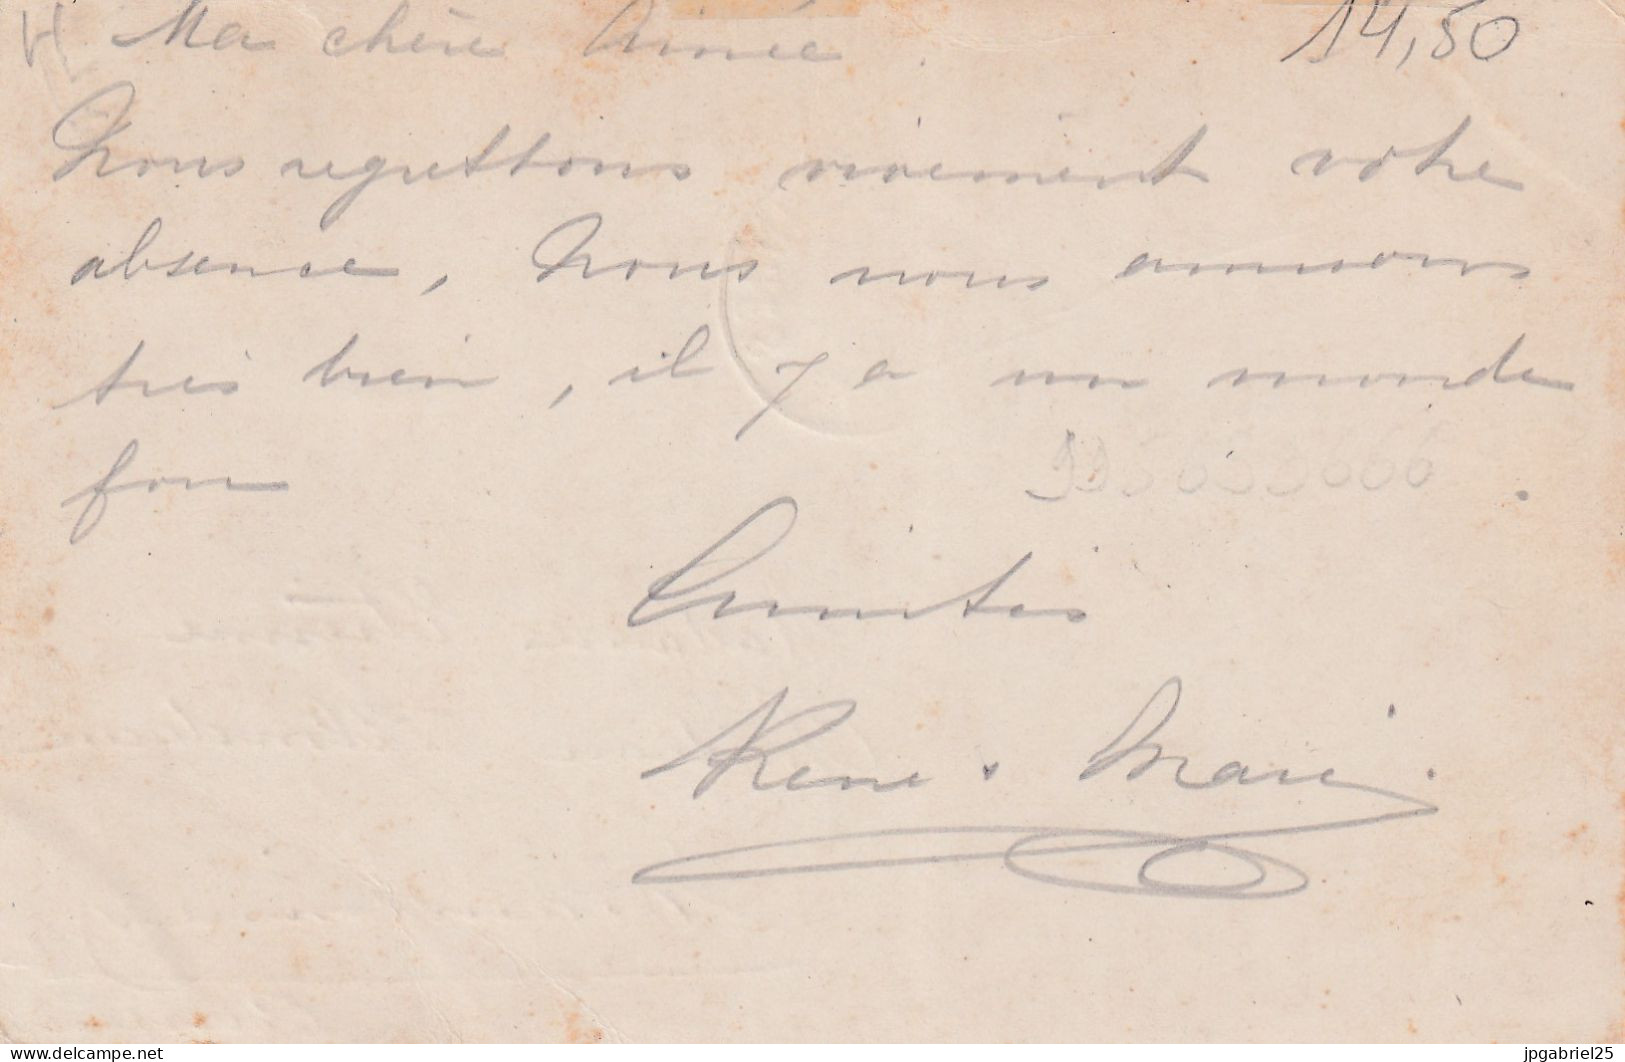 H Ma chère Aimée 14,50
Nous regrettons vivement votre
absence, Nous nous amusons
très bien, il y a un monde
fou
Amitiés
René & Marie
www.delcampe.net jpgabriel25